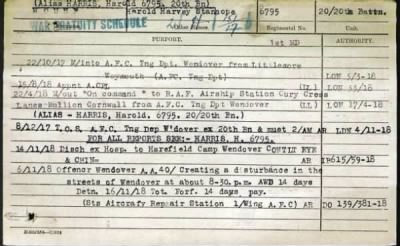 (Alias HARRIS, Harold 6795, 20th Bn)
WAR GRATUITY SCHEDULE
Harold Harvey Stanhope
6795
20/20th Battn.
Regimental No.
PURPORT.
1st MD
22/10/17 M/into A.F.C. Tng Dpt. Wendover from Littlemore
Weymouth (A.FC. Tng Dpt)
LON 5/3-18
Appnt A.CPL (LL) LON 33/18
22/4/18 M/out "On command" to R.A.F. Airship Station Cury Cross
Lanes-Mullion Cornwall from A.F.C. Tng Dpt Wendover (LL) LON 17/4-18
(ALIAS - HARRIS, Harold. 6795. 20/20th Bn.)
8/12/17 T.O.S. A.F.C. Tng Dep W'dover ex 20th Bn & must 2/AM AR LDN 4/11-18
FOR ALL REPORTS SEE:- HARRIS, H. 6795.
14/11/18 Disch ex Hosp. to Harefield Camp Wendover CONTIN EYE
& CHIN AR 615/59-18
6/11/18 Offence Wendover A.A.40/ Creating a disturbance in the
streets of Wendover at about 8-30.p.m. AWD 14 days
Detn. 16/11/18 Tot. Forf. 14 days pay.
(Sts Aircraft Repair Station 1/Wing A.F.C) AR DO 139/381-18